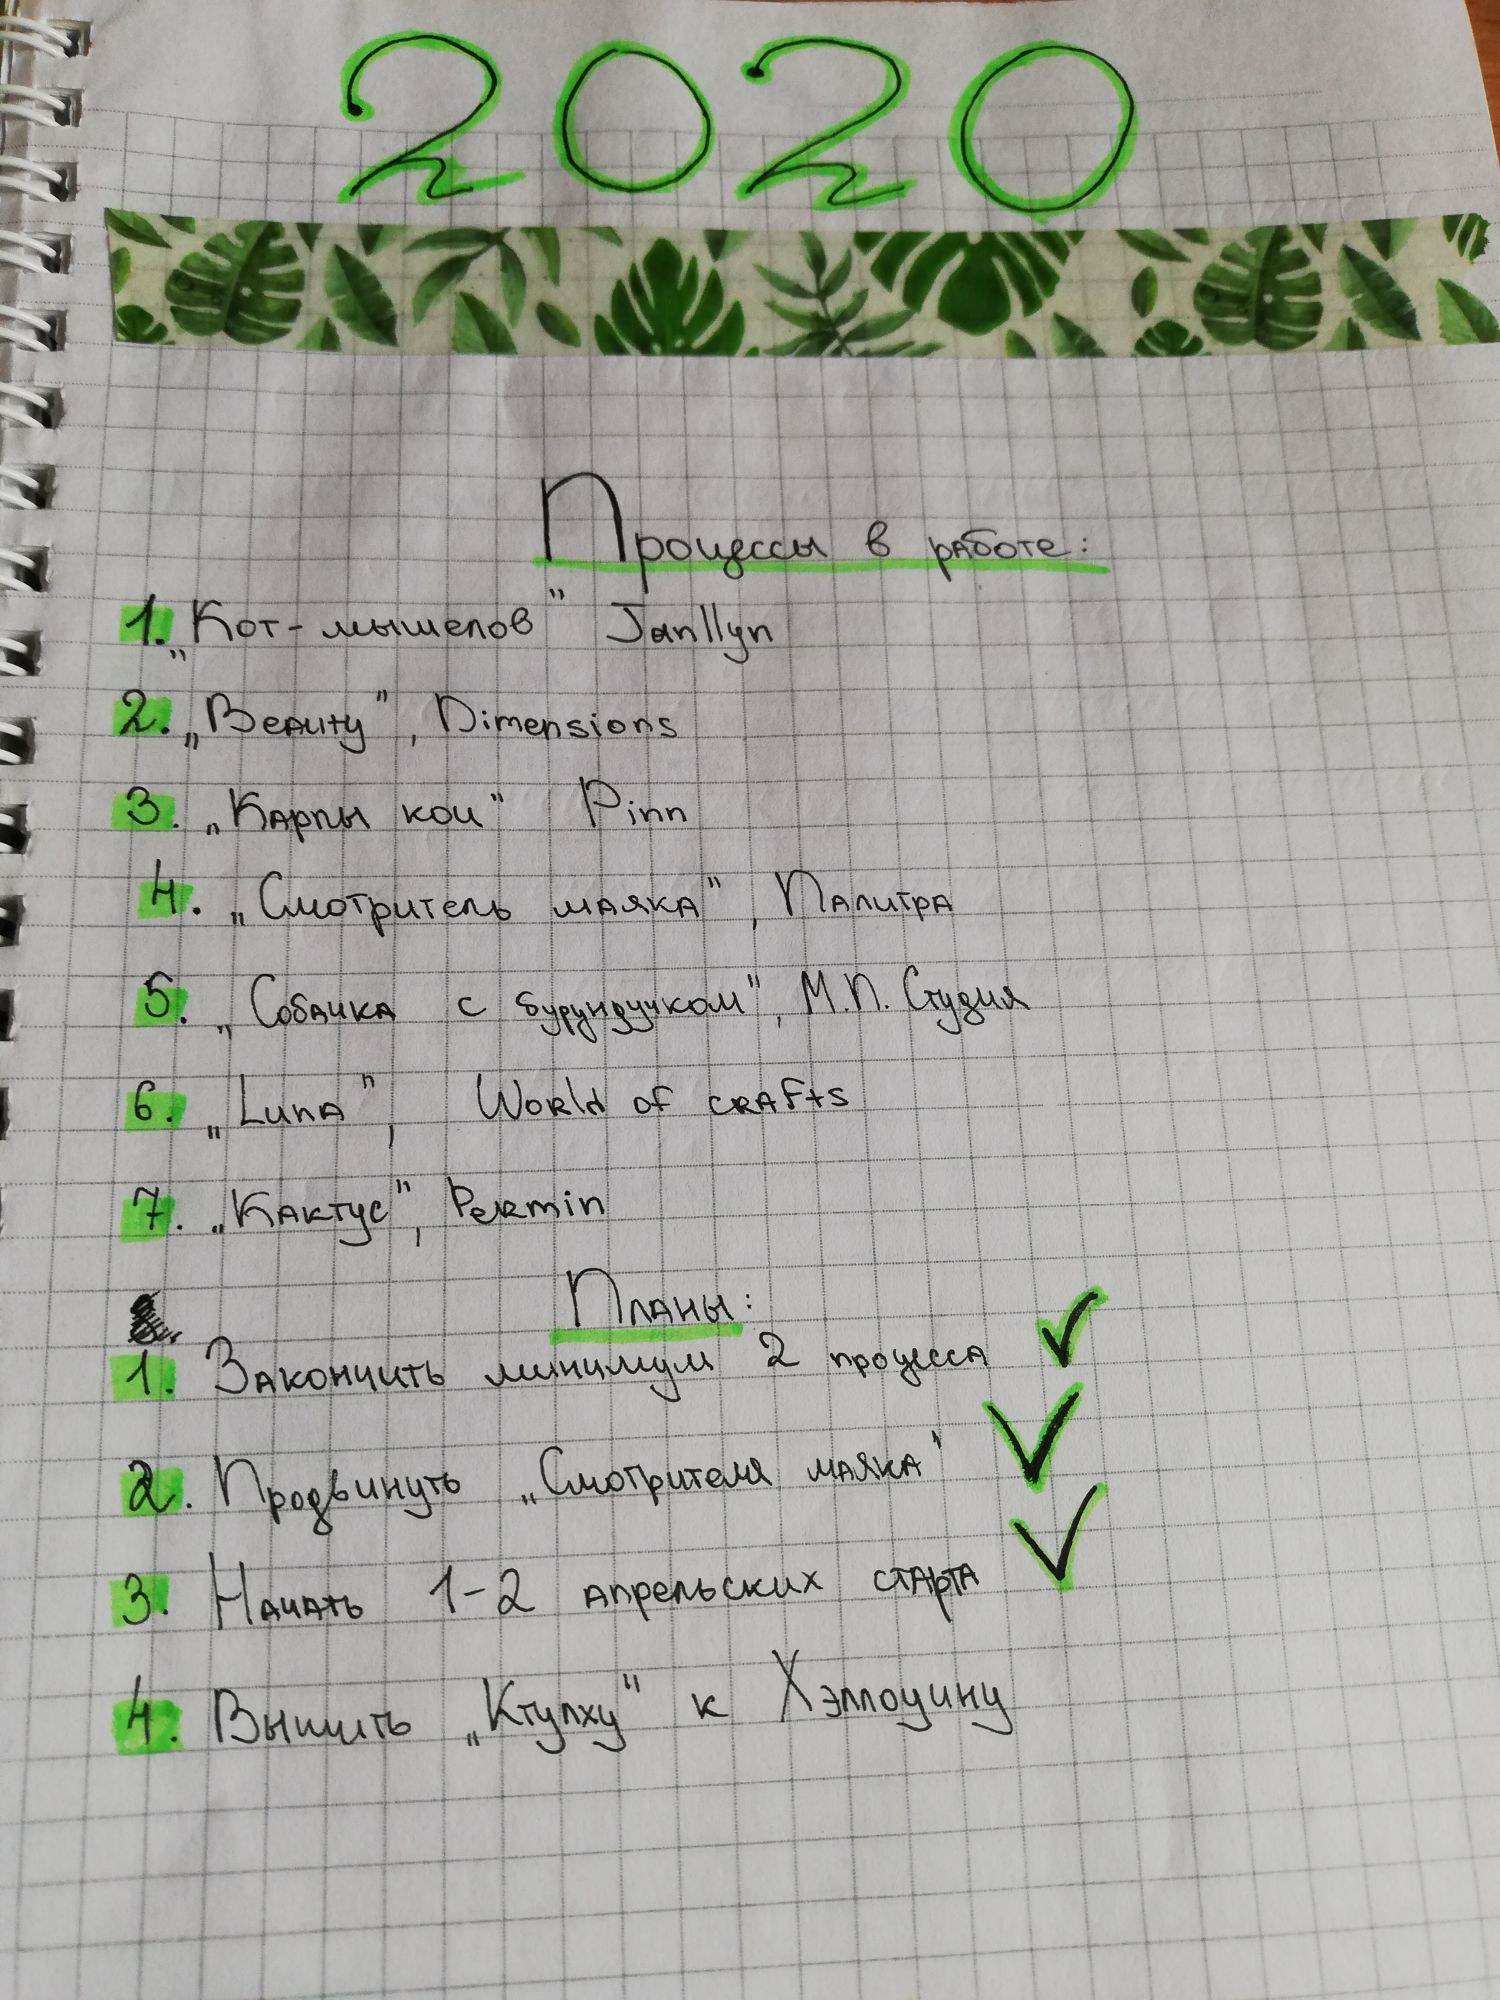 2020
Процессы в работе:
1. „Кот-мышелов" Janllyn
2. „Beauty", Dimensions
3. „Карпы кои" Pinn
4. „Смотритель маяка", Палитра
5. „Собачка с бурундучком", М.П. Студия
6. „Luna", World of crafts
7. „Кактус", Permin
Планы:
1. Закончить минимум 2 процесса ✓
2. Продвинуть „Смотрителя маяка" ✓
3. Начать 1-2 апрельских старта ✓
4. Вышить „Ктулху" к Хэллоуину